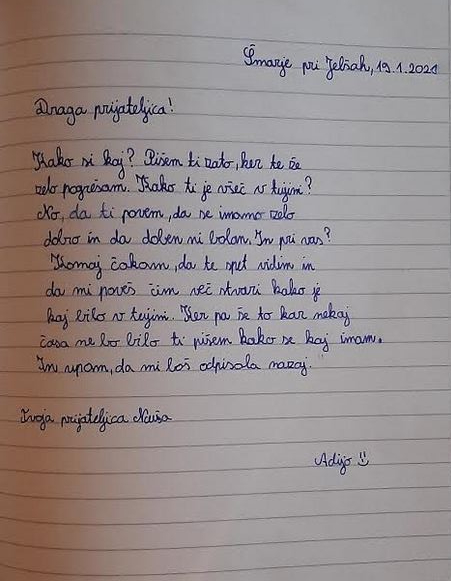 Šmarje pri Jelšah, 19.1.2021
Draga prijateljica!
Kako si kaj? Pišem ti zato, ker te že
zelo pogrešam. Kako ti je všeč v tujini?
No, da ti povem, da se imamo zelo
dobro in da doben ni bolan. In pri vas?
Komaj čakam, da te spet vidim in
da mi poveš čim več stvari kako je
kaj bilo v tujini. Ker pa še to kar nekaj
časa ne bo bilo ti pišem kako se kaj imam.
In upam, da mi boš odpisala nazaj.
Tvoja prijateljica Nuša
Adijo